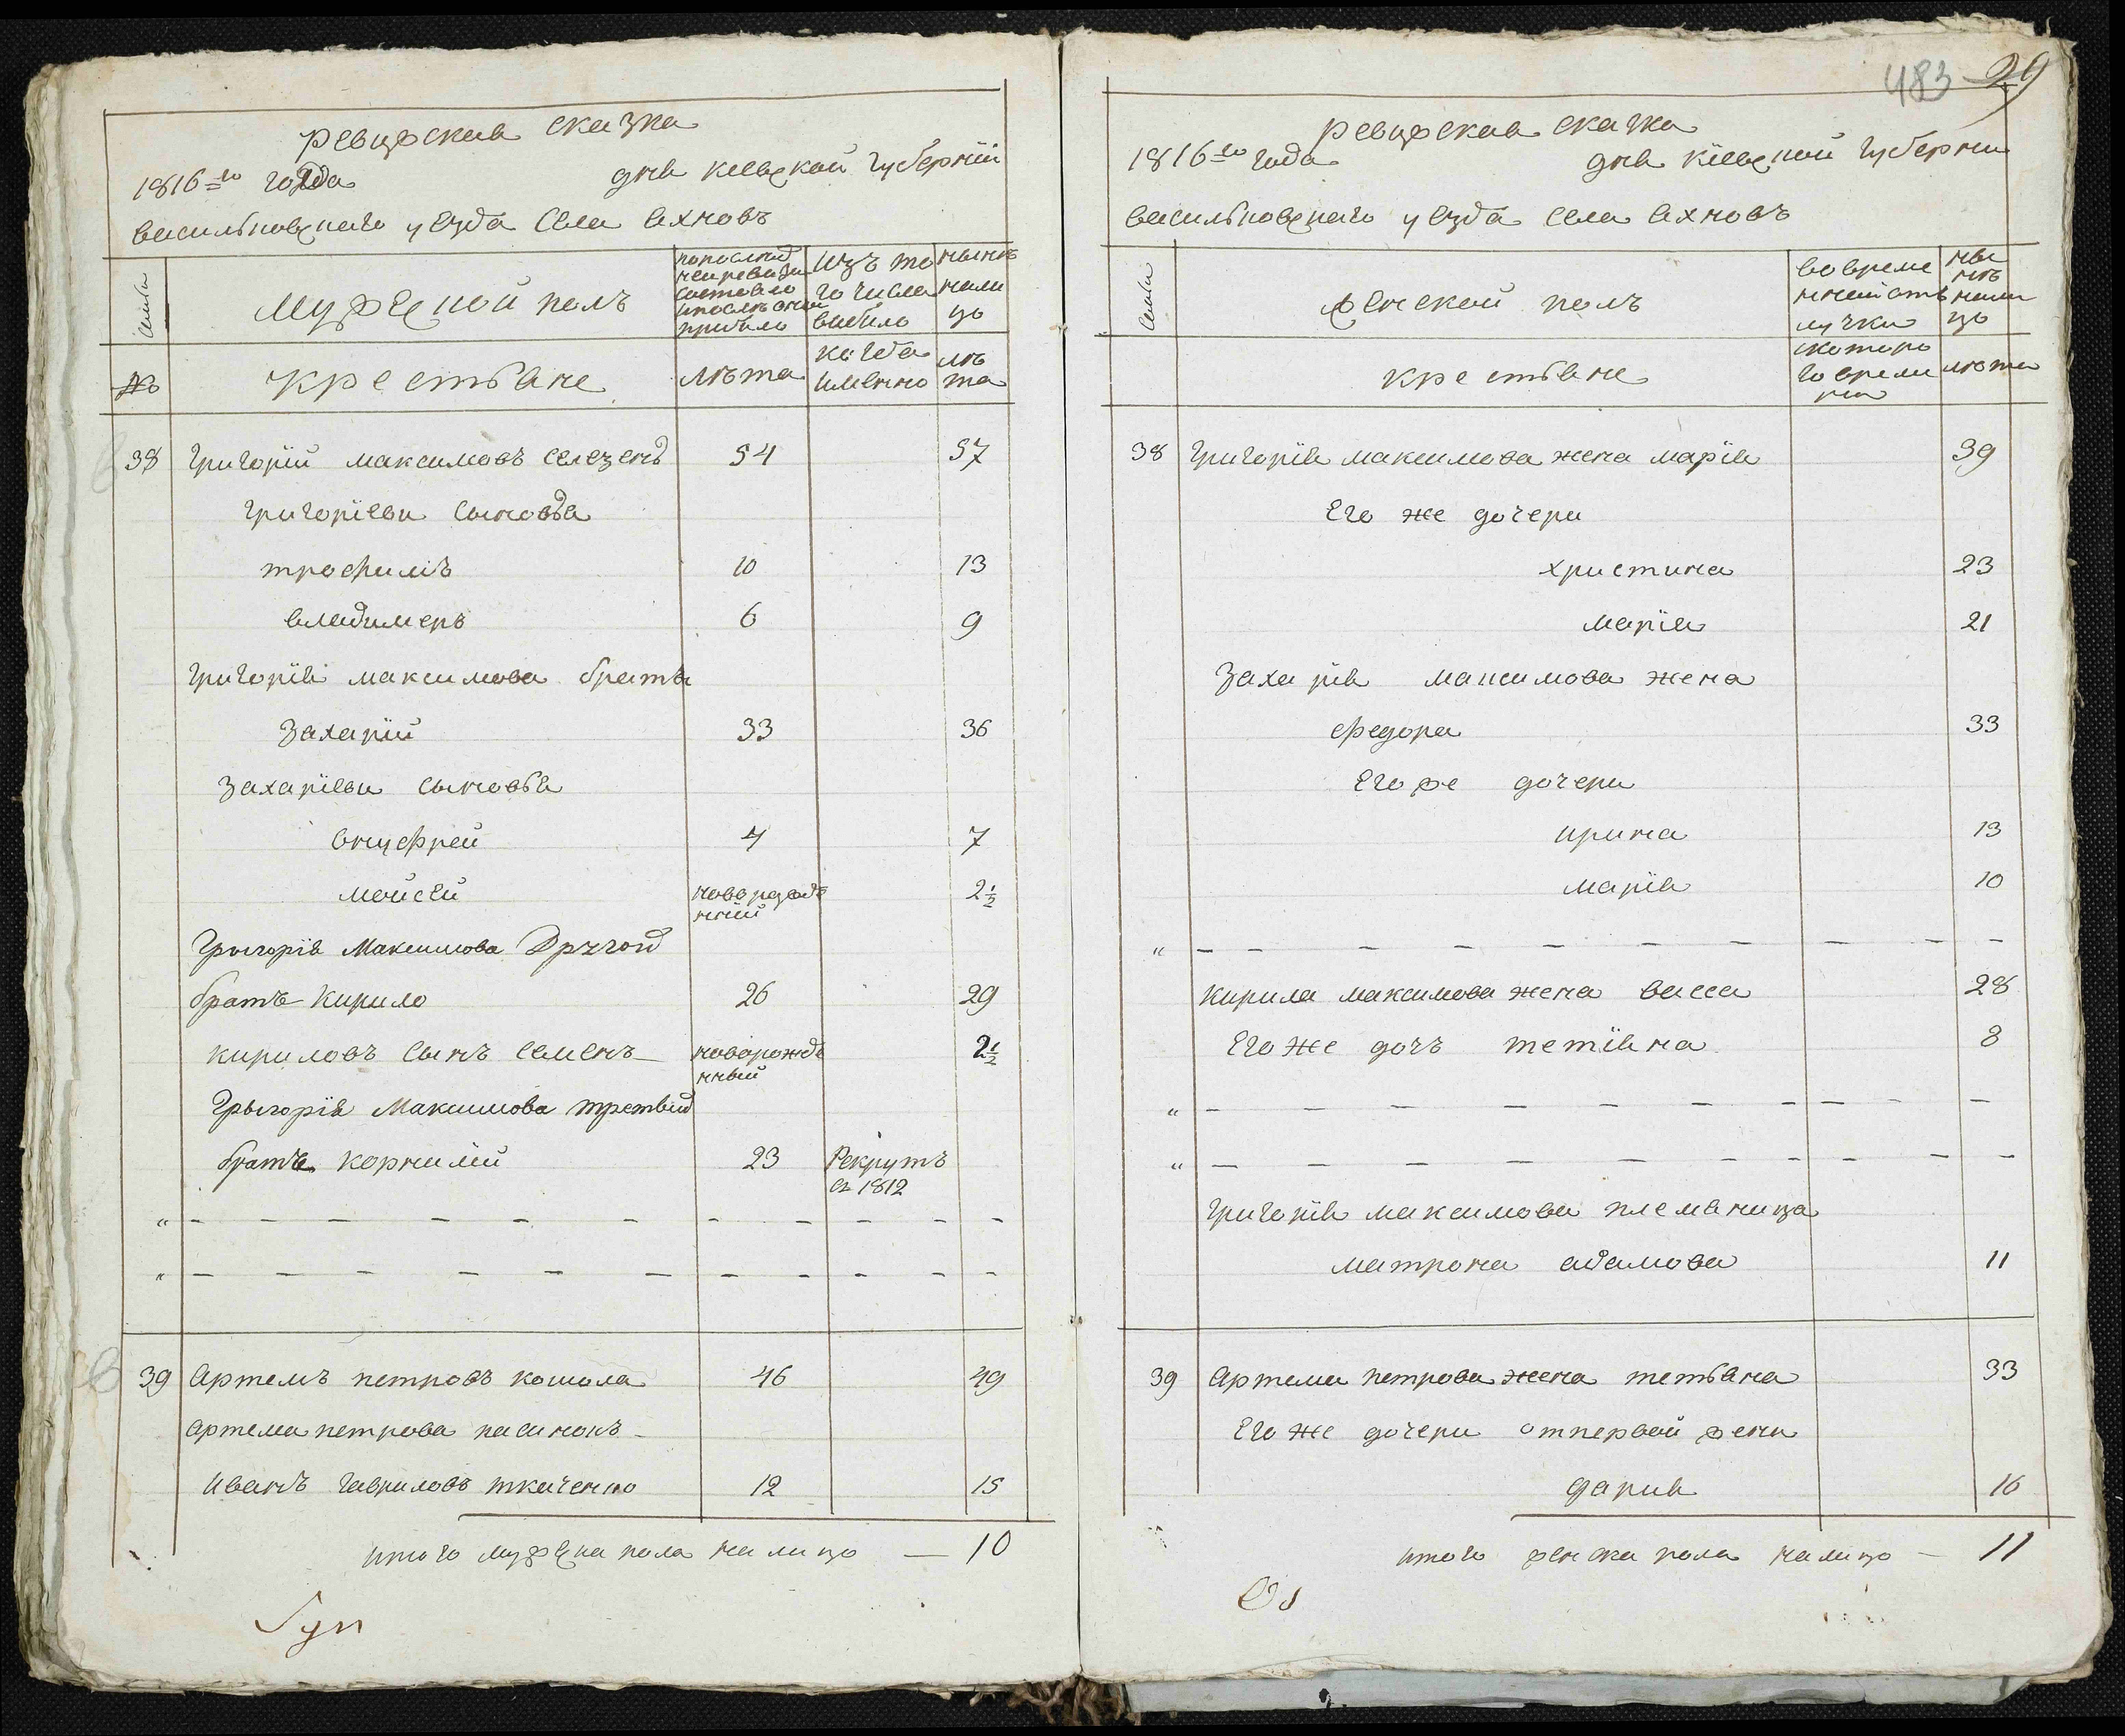 ревизская сказка
1816=го года дня киевской губернїи
василковскаго уезда села яхновъ
семьи
мужеской полъ
по послед
ней ревизи
состояло
и после оной
прибыло
изъ то
го числа
выбыло
нынѣ
на ли
цо
№
крестьяне
лѣта
когда
именно
лѣ
та
38 григорїй максимовъ селезень 54 57
григорїеви сыновья
трофимъ 10 13
владимеръ 6 9
григорїя максимова братъ
захарїй 33 36
захарїеви сыновья
онуфрей 4 7
мойсей новорожде
нний 2½
Грыгорія Максимова Другой
братъ кирило 26 29
кириловъ сынъ семенъ новорожде
нный 2½
Грыгорія Максимова третый
братъ корнилїй 23 Рекрутъ
в 1812
" — — — — — — — — — — —
" — — — — — — — — — — —
39 Артемъ петровъ кошола 46 49
Артема петрова пасинокъ
иванъ гавриловъ ткаченко 12 15
итого мужеска пола на лицо — 10
483 29
ревизская сказка
1816=го года дня кїевской губерни
василковскаго уезда села яхновъ
семьи
женской полъ
во време
нной отъ
лучки
ны
нѣ
на ли
цо
крестьяне
с которо
го време
ни
лѣта
38 григорїя максимова жена марїя 39
Его же дочери
христина 23
марїя 21
Захарїя максимова жена
федора 33
Его же дочери
ирина 13
марїя 10
" — — — — — — — — — —
кирила максимова жена васса 28
Его же дочъ тетїяна 8
" — — — — — — — — — —
" — — — — — — — — — —
григорїя максимова племяница
матрона адамова 11
39 Артема петрова жена тетьяна 33
Его же дочери от первой жени
дария 16
итого женска пола на лицо — 11